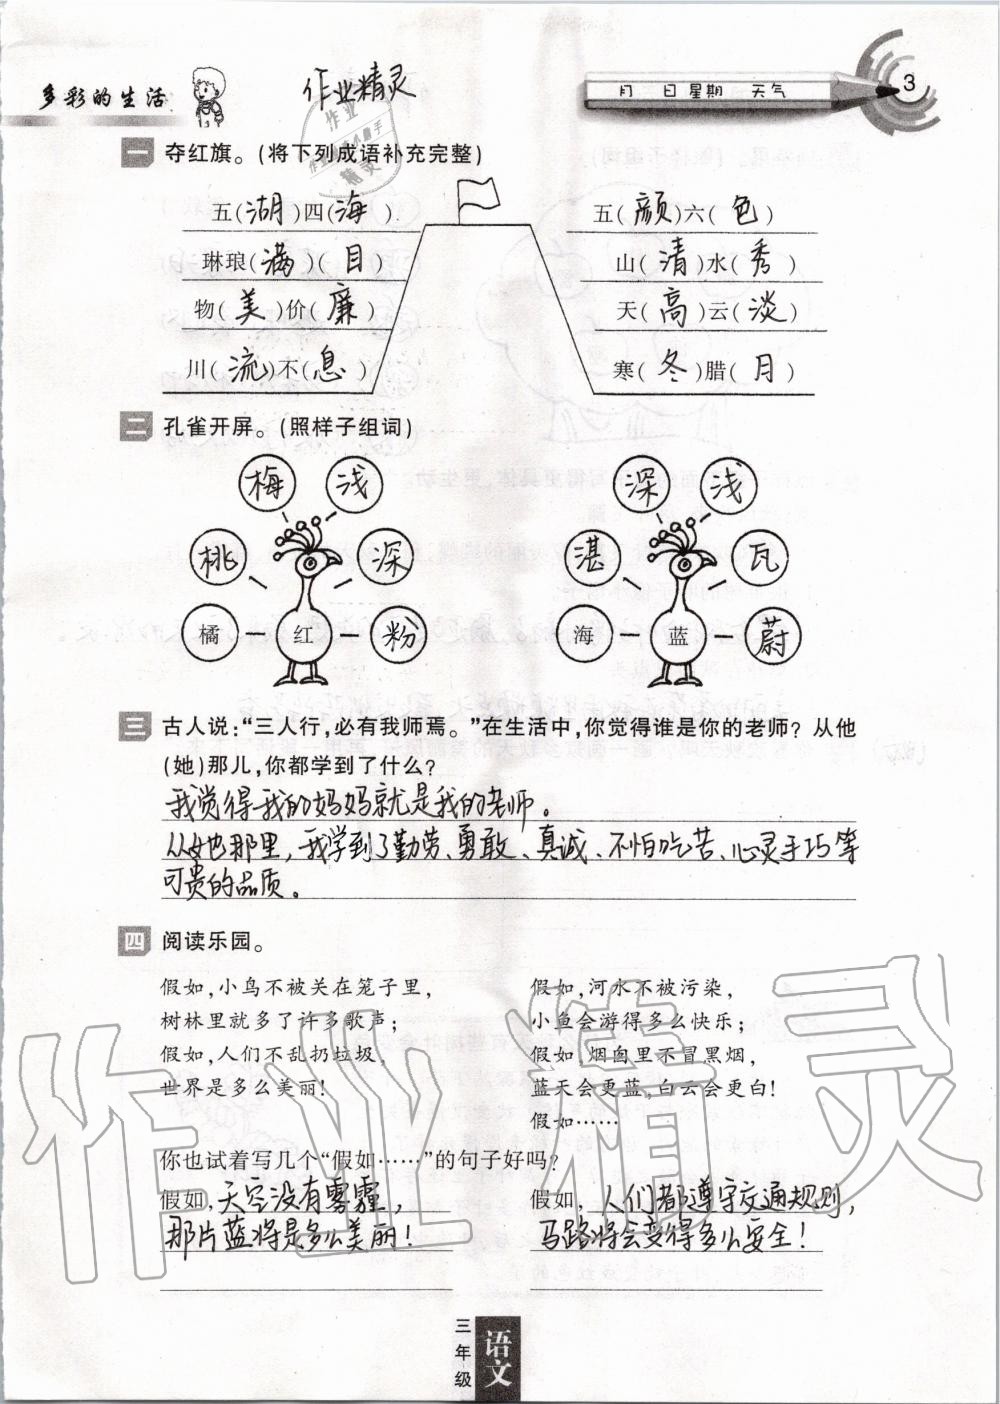 多彩的生活
作业精灵
月 日 星期 天气
3
作业
作业精灵小助手
精灵
一 夺红旗。(将下列成语补充完整)
五(湖)四(海).
五(颜)六(色)
琳琅(满)(目)
山(清)水(秀)
物(美)价(廉)
天(高)云(淡)
川(流)不(息)
寒(冬)腊(月)
二 孔雀开屏。(照样子组词)
梅 浅
桃 深
橘 红 粉
深 浅
湛 瓦
海 蓝 蔚
三 古人说:“三人行,必有我师焉。”在生活中,你觉得谁是你的老师? 从他
(她)那儿,你都学到了什么?
我觉得我的妈妈就是我的老师。
从她那里,我学到了勤劳、勇敢、真诚、不怕吃苦、心灵手巧等
可贵的品质。
四 阅读乐园。
假如,小鸟不被关在笼子里,
树林里就多了许多歌声;
假如,人们不乱扔垃圾,
世界是多么美丽!
假如,河水不被污染,
小鱼会游得多么快乐;
假如,烟囱里不冒黑烟,
蓝天会更蓝,白云会更白!
假如……
你也试着写几个“假如……”的句子好吗?
假如,天空没有雾霾,
那片蓝将是多么美丽!
假如,人们都遵守交通规则,
马路将会变得多么安全!
作业精灵
三年级
语文